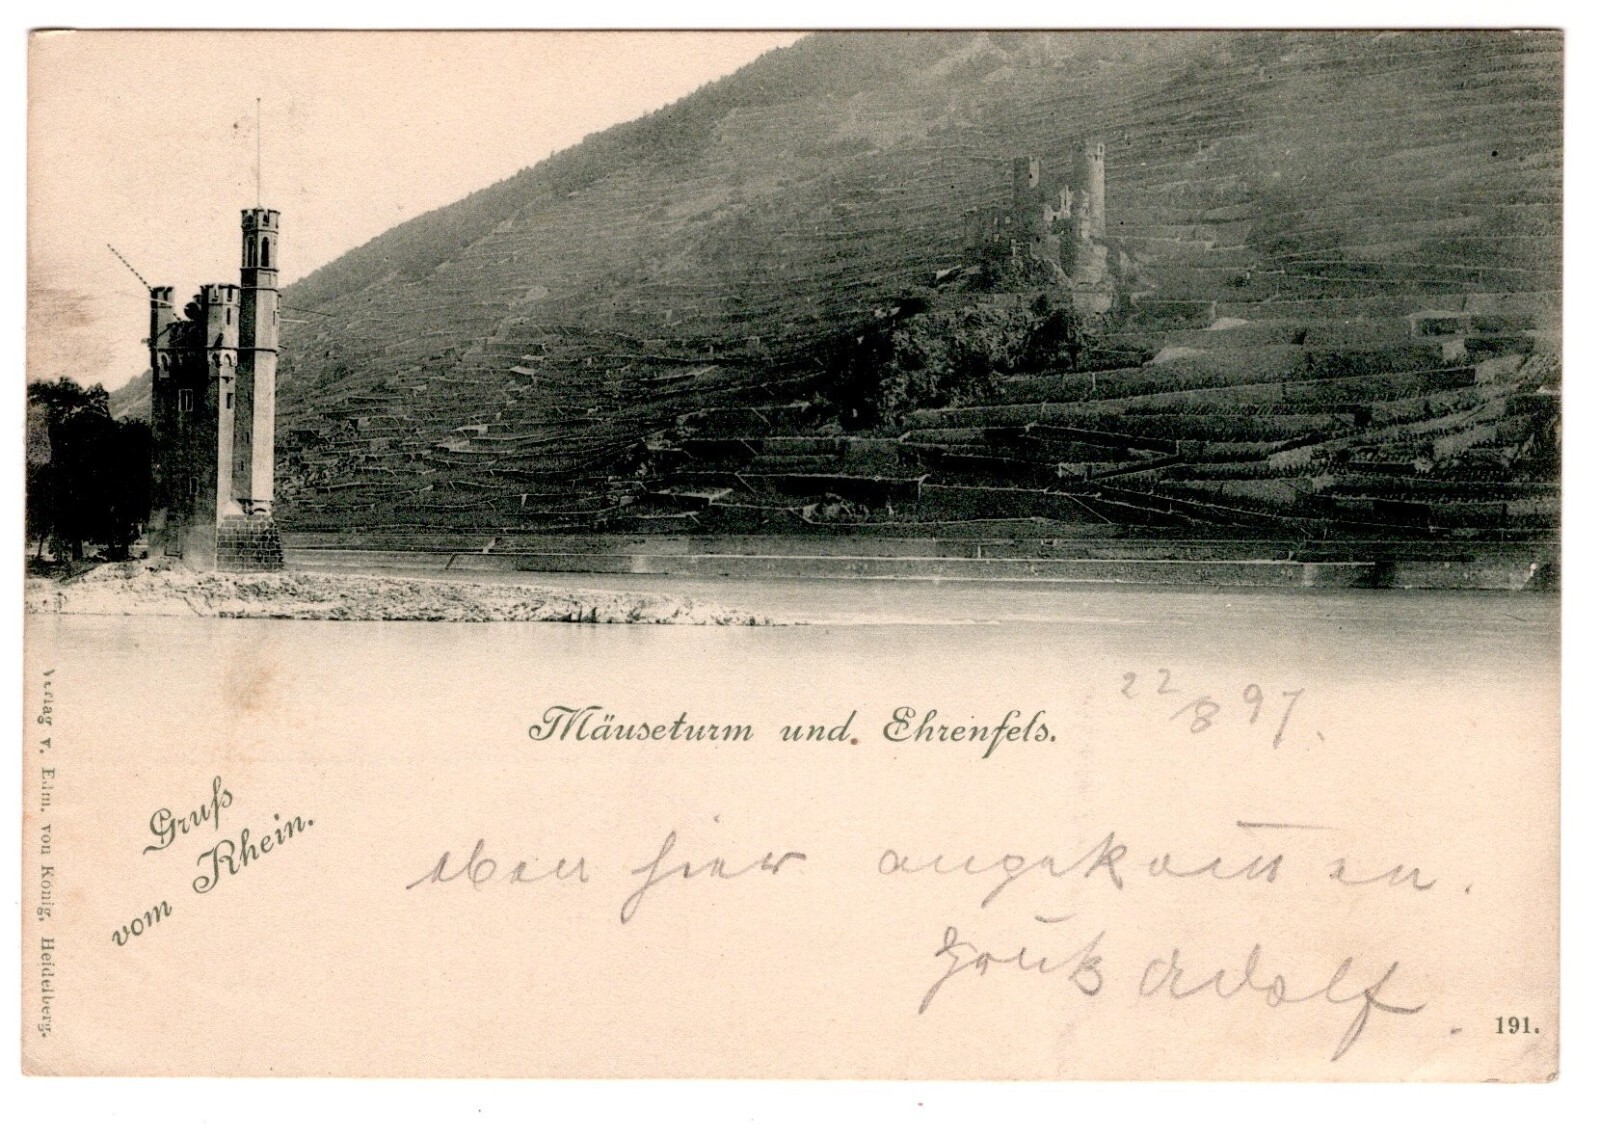 Mäuseturm und Ehrenfels.
22/8 97.
Gruß
vom Rhein.
eben hier angekom̅en.
Gruß Adolf.
191.
Verlag v. Edm. von König, Heidelberg.